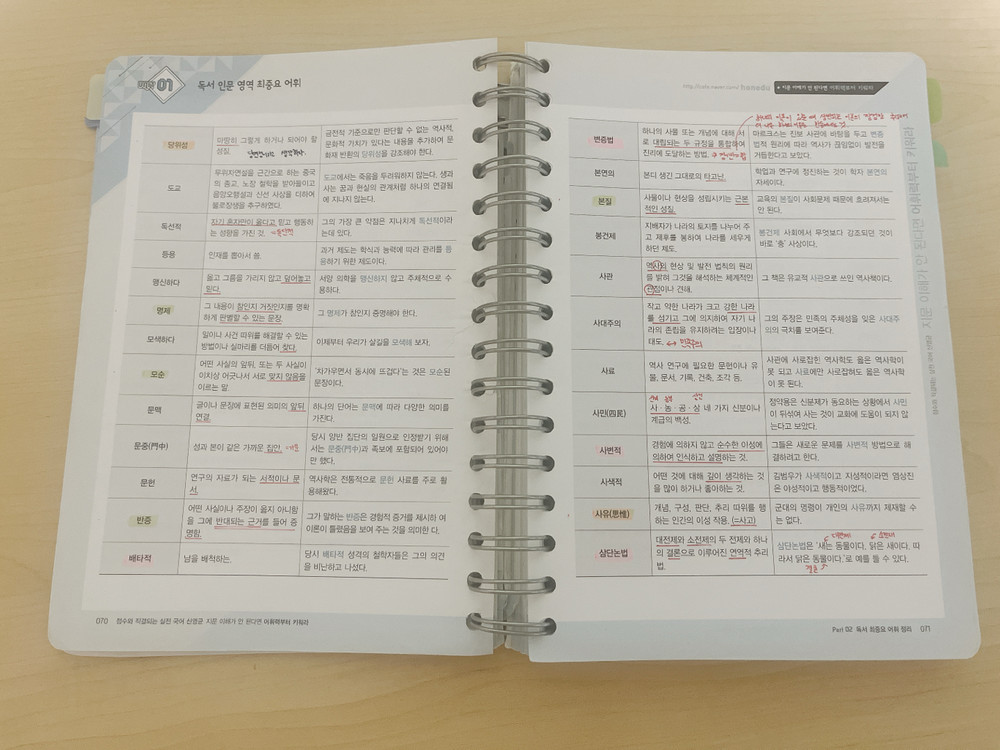 01 독서 인문 영역 최중요 어휘
당위성
마땅히 그렇게 하거나 되어야 할
성질.
금전적 기준으로만 판단할 수 없는 역사적,
문화적 가치가 있다는 내용을 추가하여 문
화재 반환의 당위성을 강조해야 한다.
도교
무위자연설을 근간으로 하는 중국
의 종교. 노장 철학을 받아들이고
음양오행설과 신선 사상을 더하여
불로장생을 추구하였다.
도교에서는 죽음을 두려워하지 않는다. 생과
사는 꿈과 현실의 관계처럼 하나의 연결됨
에 지나지 않는다.
독선적
자기 혼자만이 옳다고 믿고 행동하
는 성향을 가진 것.
그의 가장 큰 약점은 지나치게 독선적이라
는데 있다.
등용
인재를 뽑아서 씀.
과거 제도는 학식과 능력에 따라 관리를 등
용하기 위한 제도이다.
맹신하다
옳고 그름을 가리지 않고 덮어놓고
믿다.
서양 의학을 맹신하지 않고 주체적으로 수
용하다.
명제
그 내용이 참인지 거짓인지를 명확
하게 판별할 수 있는 문장.
그 명제가 참인지 증명해야 한다.
모색하다
일이나 사건 따위를 해결할 수 있는
방법이나 실마리를 더듬어 찾다.
이제부터 우리가 살길을 모색해 보자.
모순
어떤 사실의 앞뒤, 또는 두 사실이
이치상 어긋나서 서로 맞지 않음을
이르는 말.
'차가우면서 동시에 뜨겁다'는 것은 모순된
문장이다.
문맥
글이나 문장에 표현된 의미의 앞뒤
연결.
하나의 단어는 문맥에 따라 다양한 의미를
가진다.
문중(門中)
성과 본이 같은 가까운 집안.
당시 양반 집단의 일원으로 인정받기 위해
서는 문중(門中)과 족보에 포함되어 있어야
만 했다.
문헌
연구의 자료가 되는 서적이나 문
서.
역사학은 전통적으로 문헌 사료를 주로 활
용해왔다.
반증
어떤 사실이나 주장이 옳지 아니함
을 그에 반대되는 근거를 들어 증
명함.
그가 말하는 반증은 경험적 증거를 제시하여
이론이 틀렸음을 보여 주는 것을 의미한다.
배타적
남을 배척하는.
당시 배타적 성격의 철학자들은 그의 의견
을 비난하고 나섰다.
070 점수와 직결되는 실전 국어 신영균 지문 이해가 안 된다면 어휘력부터 키워라
지문 이해가 안 된다면 어휘력부터 키워라
변증법
하나의 사물 또는 개념에 대해 서
로 대립되는 두 규정을 통합하여
진리에 도달하는 방법.
마르크스는 진보 사관에 바탕을 두고 변증
법적 원리에 따라 역사가 끊임없이 발전을
거듭한다고 보았다.
본연의
본디 생긴 그대로의 타고난.
학업과 연구에 정진하는 것이 학자 본연의
자세이다.
본질
사물이나 현상을 성립시키는 근본
적인 성질.
교육의 본질이 사회문제 때문에 흐려져서는
안 된다.
봉건제
지배자가 나라의 토지를 나누어 주
고 제후를 봉하여 나라를 세우게
하던 제도.
봉건제 사회에서 무엇보다 강조되던 것이
바로 '충' 사상이다.
사관
역사의 현상 및 발전 법칙의 원리
를 밝혀 그것을 해석하는 체계적인
관점이나 견해.
그 책은 유교적 사관으로 쓰인 역사책이다.
사대주의
작고 약한 나라가 크고 강한 나라
를 섬기고 그에 의지하여 자기 나
라의 존립을 유지하려는 입장이나
태도.
그의 주장은 민족의 주체성을 잊은 사대주
의의 극치를 보여준다.
사료
역사 연구에 필요한 문헌이나 유
물, 문서, 기록, 건축, 조각 등.
사관에 사로잡힌 역사학도 옳은 역사학이
못 되고 사료에만 사로잡혀도 옳은 역사학
이 못 된다.
사민(四民)
사·농·공·상 네 가지 신분이나
계급의 백성.
정약용은 신분제가 동요하는 상황에서 사민
이 뒤섞여 사는 것이 교화에 도움이 되지 않
는다고 보았다.
사변적
경험에 의하지 않고 순수한 이성에
의하여 인식하고 설명하는 것.
그들은 새로운 문제를 사변적 방법으로 해
결하려고 한다.
사색적
어떤 것에 대해 깊이 생각하는 것
을 많이 하거나 좋아하는 것.
김범우가 사색적이고 지성적이라면 염상진
은 야성적이고 행동적이었다.
사유(思惟)
개념, 구성, 판단, 추리 따위를 행
하는 인간의 이성 작용. (=사고)
군대의 명령이 개인의 사유까지 제재할 수
는 없다.
삼단논법
대전제와 소전제의 두 전제와 하나
의 결론으로 이루어진 연역적 추리
법.
대전제 소전제
삼단논법은 '새는 동물이다. 닭은 새이다. 따
라서 닭은 동물이다.'로 예를 들 수 있다.
결론
Part 02 독서 최중요 어휘 정리 071
지문 이해가 안 된다면 어휘력부터 키워라